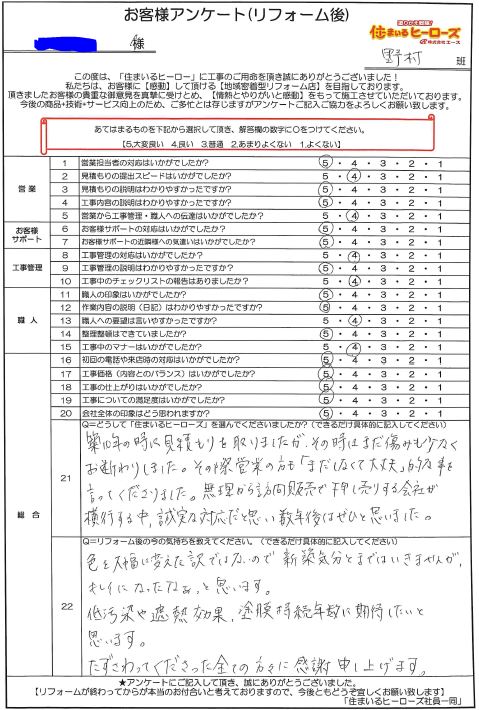 お客様アンケート(リフォーム後)
迷わず応援隊!
住まいるヒーローズ
株式会社エース
様
野村 班
この度は、「住まいるヒーロー」に工事のご用命を頂き誠にありがとうございました!
私たちは、お客様に【感動】して頂ける【地域密着型リフォーム店】を目指しております。
頂きましたお客様の貴重な御意見を真摯に受けとめ、【情熱とやりがいと感動】をもって施工させていただいております。
今後の商品・技術・サービス向上のため、ご多忙とは存じますがアンケートご記入ご協力をよろしくお願い致します。
あてはまるものを下記から選択して頂き、解答欄の数字に○をつけてください。
【5,大変良い 4,良い 3,普通 2,あまりよくない 1,よくない】
営業
1 営業担当者の対応はいかがでしたか? 5・4・3・2・1
2 見積もりの提出スピードはいかがでしたか? 5・4・3・2・1
3 見積もりの説明はわかりやすかったですか? 5・4・3・2・1
4 工事内容の説明はわかりやすかったですか? 5・4・3・2・1
5 営業から工事管理・職人への伝達はいかがでしたか? 5・4・3・2・1
お客様サポート
6 お客様サポートの対応はいかがでしたか? 5・4・3・2・1
7 お客様サポートの近隣様への気遣いはいかがでしたか? 5・4・3・2・1
工事管理
8 工事管理の対応はいかがでしたか? 5・4・3・2・1
9 工事管理の説明はわかりやすかったですか? 5・4・3・2・1
10 工事中のチェックリストの報告はありましたか? 5・4・3・2・1
職人
11 職人の印象はいかがでしたか? 5・4・3・2・1
12 作業内容の説明(日記)はわかりやすかったですか? 5・4・3・2・1
13 職人への要望は言いやすかったですか? 5・4・3・2・1
14 整理整頓はできていましたか? 5・4・3・2・1
15 工事中のマナーはいかがでしたか? 5・4・3・2・1
総合
16 初回の電話や来店時の対応はいかがでしたか? 5・4・3・2・1
17 工事価格(内容とのバランス)はいかがでしたか? 5・4・3・2・1
18 工事の仕上がりはいかがでしたか? 5・4・3・2・1
19 工事についての満足度はいかがでしたか? 5・4・3・2・1
20 会社全体の印象はどう思われますか? 5・4・3・2・1
21
Q=どうして「住まいるヒーローズ」を選んでくださいましたか?(できるだけ具体的に記入してください)
築10年の時に見積もりを取りましたが、その時はまだ傷みも少なく
お断わりしました。その際営業の方も「まだしなくて大丈夫」的な事を
言ってくださりました。無理から訪問販売で押し売りする会社が
横行する中、誠実な対応だと思い数年後はぜひと思いました。
22
Q=リフォーム後の今の気持ちを教えてください。(できるだけ具体的に記入してください)
色を大幅に変えた訳ではないので新築気分とまではいきませんが、
キレイになったなぁ、と思います。
低汚染や遮熱効果、塗膜持続年数に期待したいと
思います。
たずさわってくださった全ての方々に感謝申し上げます。
★アンケートにご記入して頂き、誠にありがとうございました。
【リフォームが終わってからが本当のお付合いと考えておりますので、今後ともどうぞ宜しくお願い致します】
「住まいるヒーローズ社員一同」